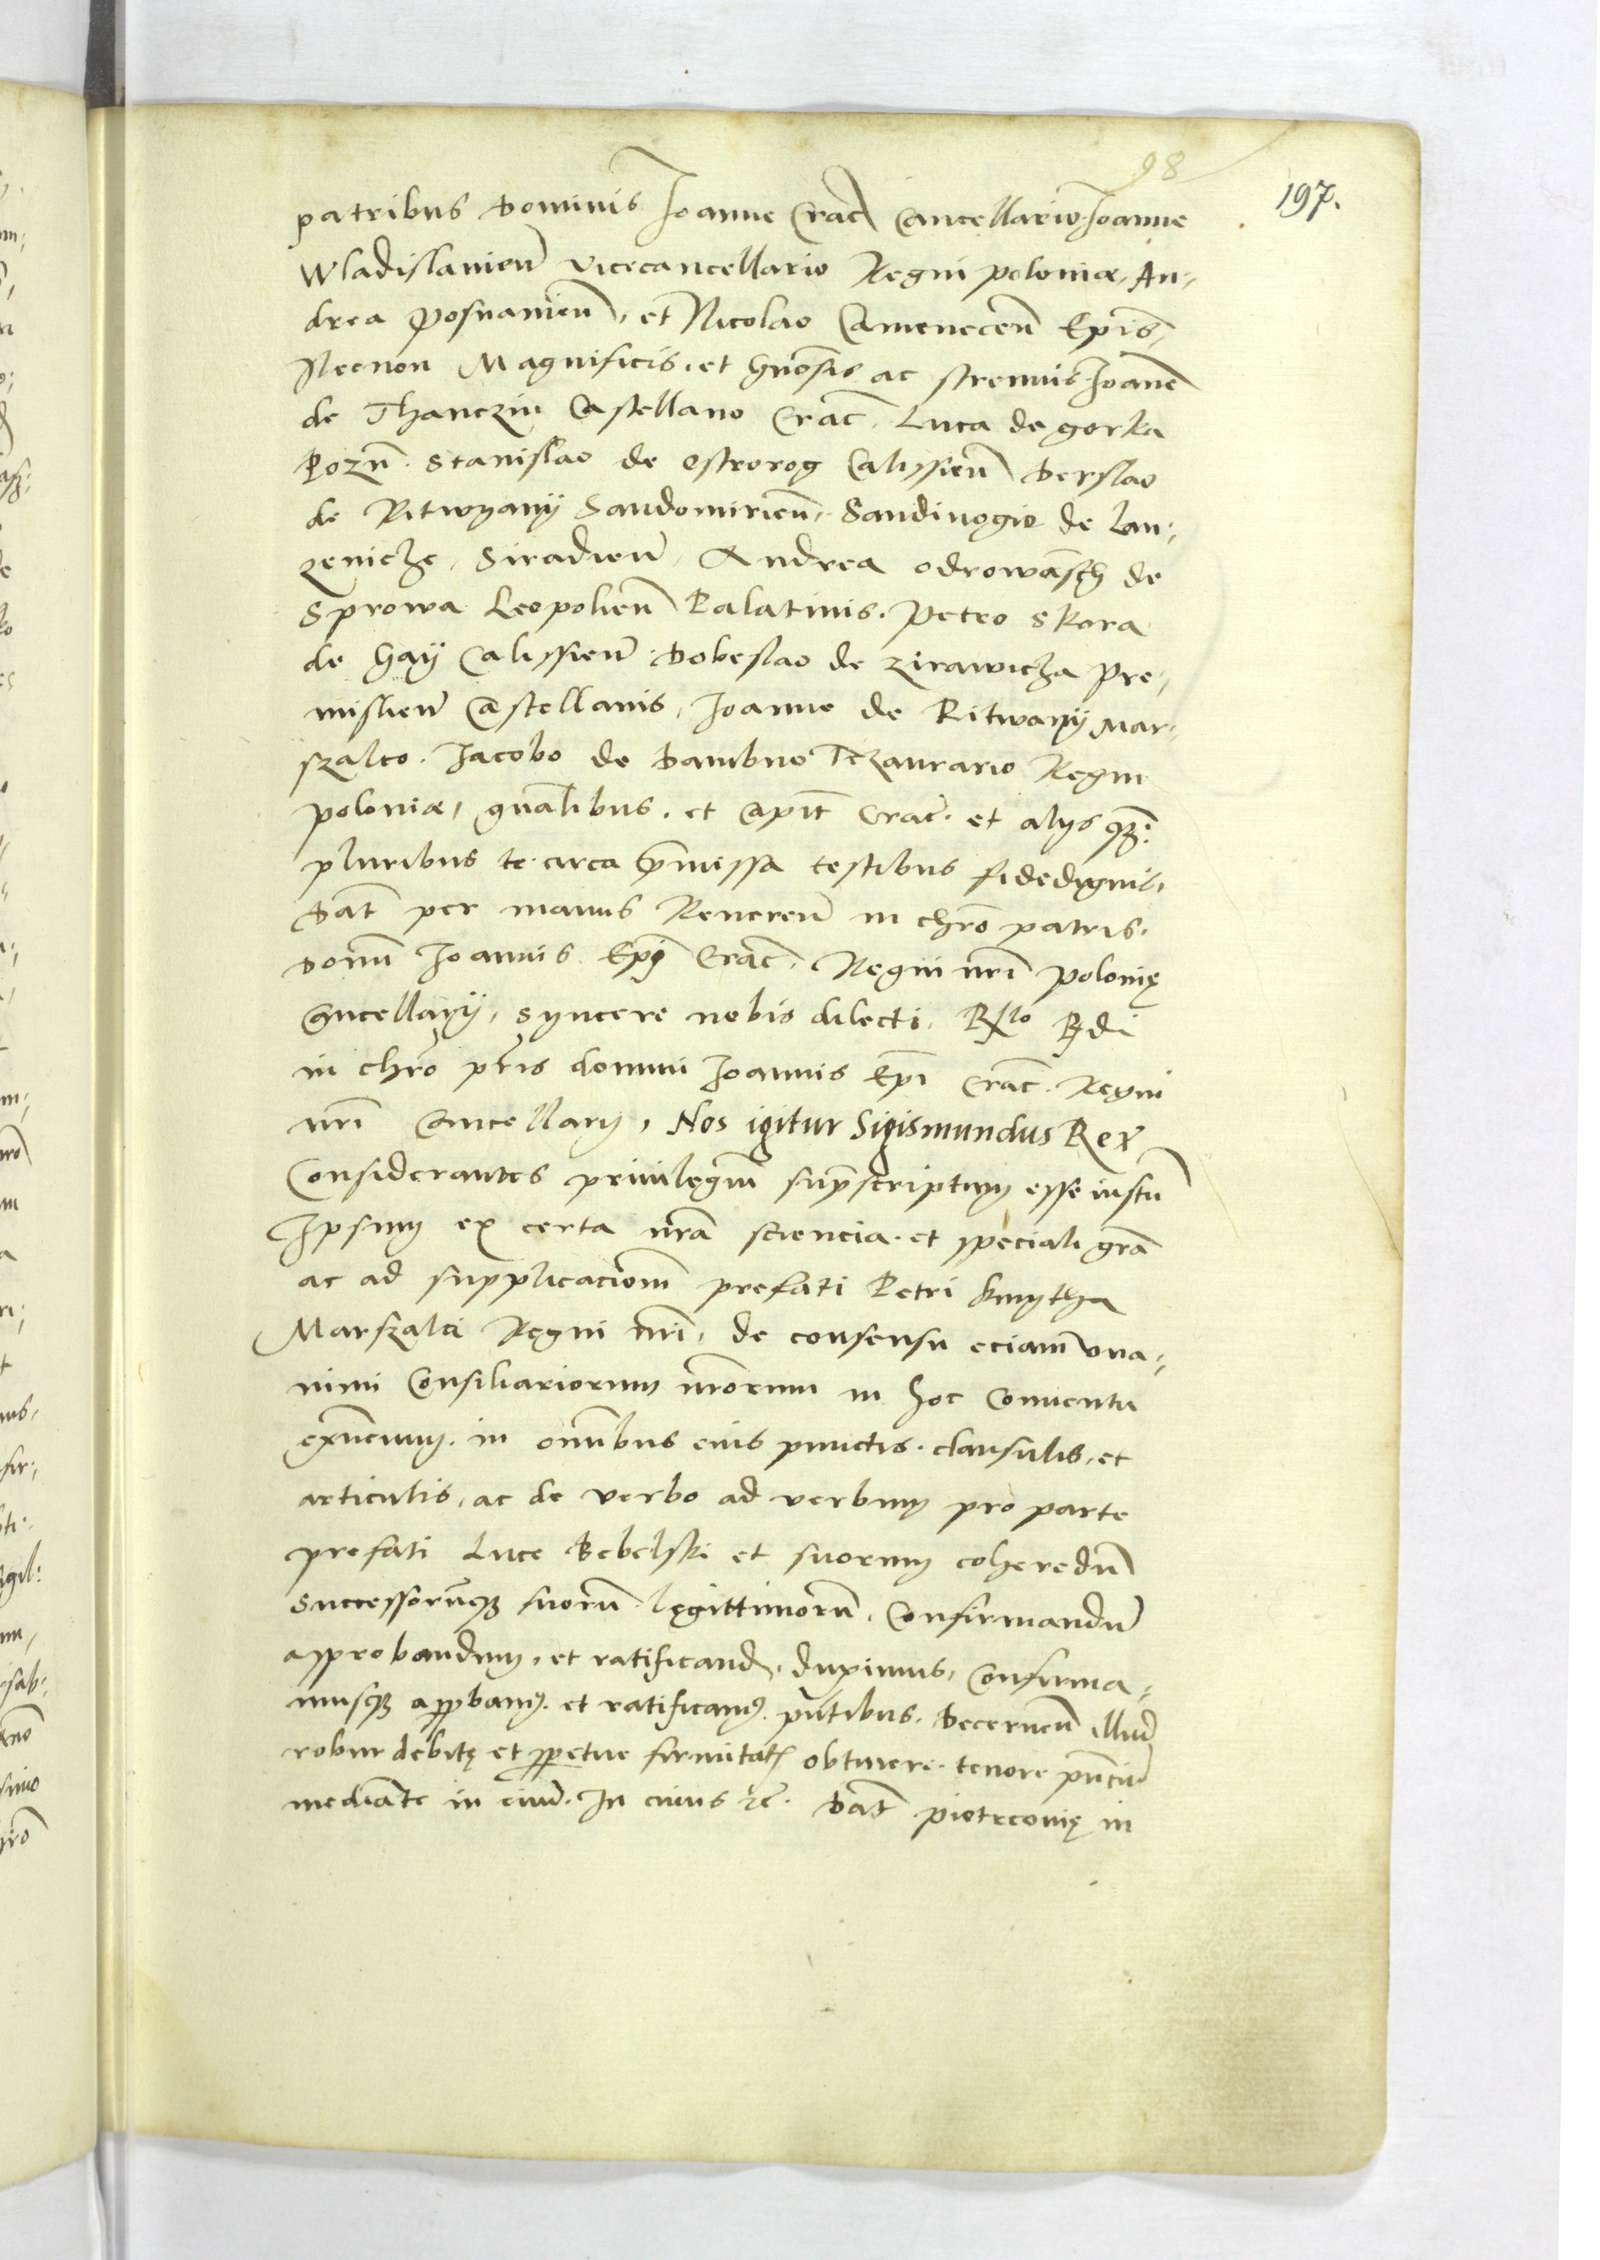 98
197.
patribus Dominis Ioanne Crac̃ Cancellario Ioanne
Wladislauien̄ vicecancellario Regni poloniæ, An,
drea Posnanien̄, et Nicolao Camenecen̄ Ep̄is,
Necnon Magnificis, et Gn̄osis ac strenuis Ioanne
de Thanczin Castellano Crac̃. Luca de gorka
Pozn̄. Stanislao de ostrorog Calissien̄ Derslao
de Ritwyanÿ Sandomirien̄. Sandiuogio de Lan,
zenicze, Siradien̄, Andrea odrowasch de
Sprowa Leopolien̄ Palatinis. Petro Skora
de Gaÿ Calissien̄. Dobeslao de zirawicza Pre,
mislien̄ Castellanis, Ioanne de Ritwanÿ Mar,
szalco. Iacobo de Dambno Tezaurario Regni
poloniæ, gn̄alibus, et Capit̄ Crac̃. et alijs q̃z:
pluribus te circa p̄missa testibus fidedignis,
Dat̄ per manus Reueren̄ in chr̄o patris.
domī Ioannis Ep̄i Crac̃. Regni nr̄i polonię
Cancellarÿ, syncere nobis dilecti. R̄lo R̄di
in chr̄o pr̄is domini Ioannis Ep̄i Crac̃. Regni
nr̄i Cancellarij, Nos igitur Sigismundus Rex
Considerantes priuilegiū sup̄scriptum esse iustū
Ipsum ex certa nr̄a sciencia. et speciali gr̄a
ac ad supplicacionē prefati Petri kmytha
Marszalci Regni nr̄i, de consensu eciam vna,
nimi Consiliariorum nr̄orum in hoc Conuentu
exn̄cium. in omībus eius punctis. clausulis, et
articulis, ac de verbo ad verbum pro parte
prefati Luce Bebelski et suorum coheredū
successorūq̃z suorū legittimorū, Confirmandū
approbandum, et ratificand, duximus, Confirma,
musq̃z app̄bamus. et ratificamus. pn̄tibus. Decernen̄ illud
robur debitę et p̄petue firmitatis obtinere. tenore pn̄ciū
mediante in euū. In cuius rē. Dat̄ piotrconię in